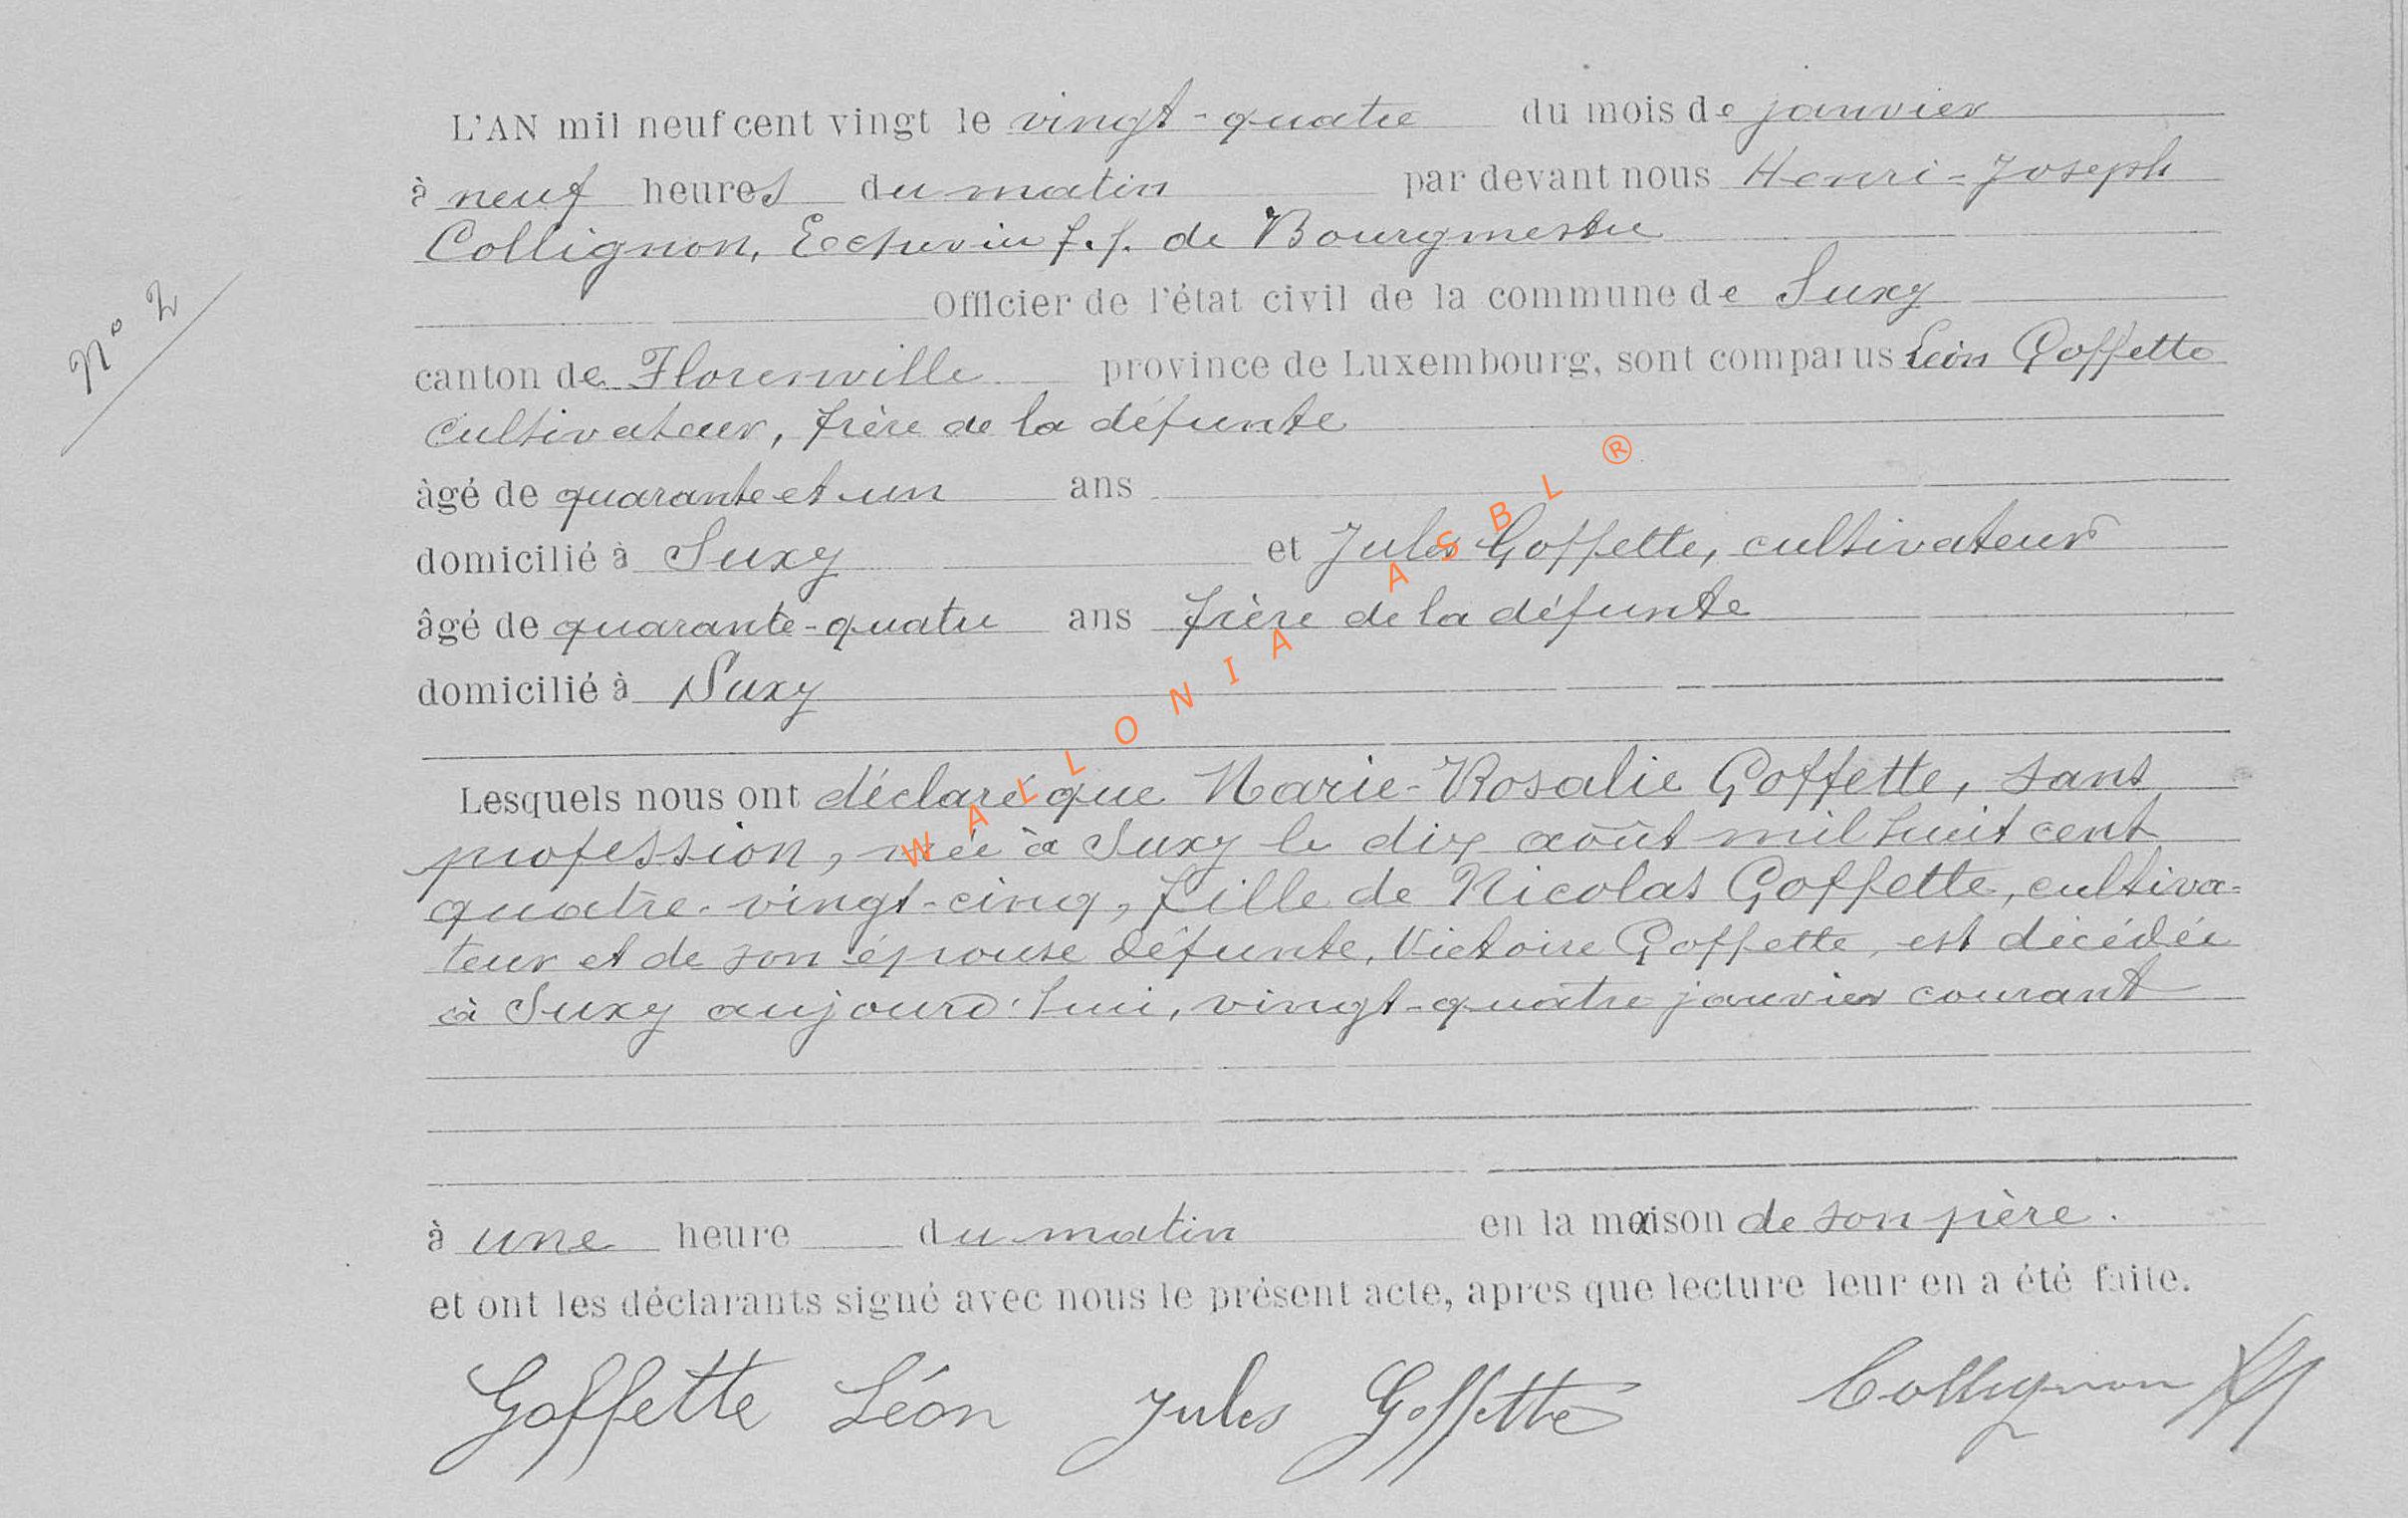 L'AN mil neuf cent vingt le vingt-quatre du mois de janvier
à neuf heures du matin par devant nous Henri-Joseph
Collignon, Echevin f.f. de Bourgmestre
Officier de l'état civil de la commune de Suxy
N° 2
canton de Florenville province de Luxembourg, sont comparus Léon Goffette
cultivateur, frère de la défunte
âgé de quarante et un ans
domicilié à Suxy et Jules Goffette, cultivateur
âgé de quarante-quatre ans frère de la défunte
domicilié à Suxy
WALLONIA ASBL ®
Lesquels nous ont déclaré que Marie-Rosalie Goffette, sans
profession, née à Suxy le dix août mil huit cent
quatre-vingt-cinq, fille de Nicolas Goffette, cultiva-
teur et de son épouse défunte, Victoire Goffette, est décédée
à Suxy aujourd'hui, vingt-quatre janvier courant
à une heure du matin en la maison de son père.
et ont les déclarants signé avec nous le présent acte, apres que lecture leur en a été faite.
Goffette Léon Jules Goffette Collignon